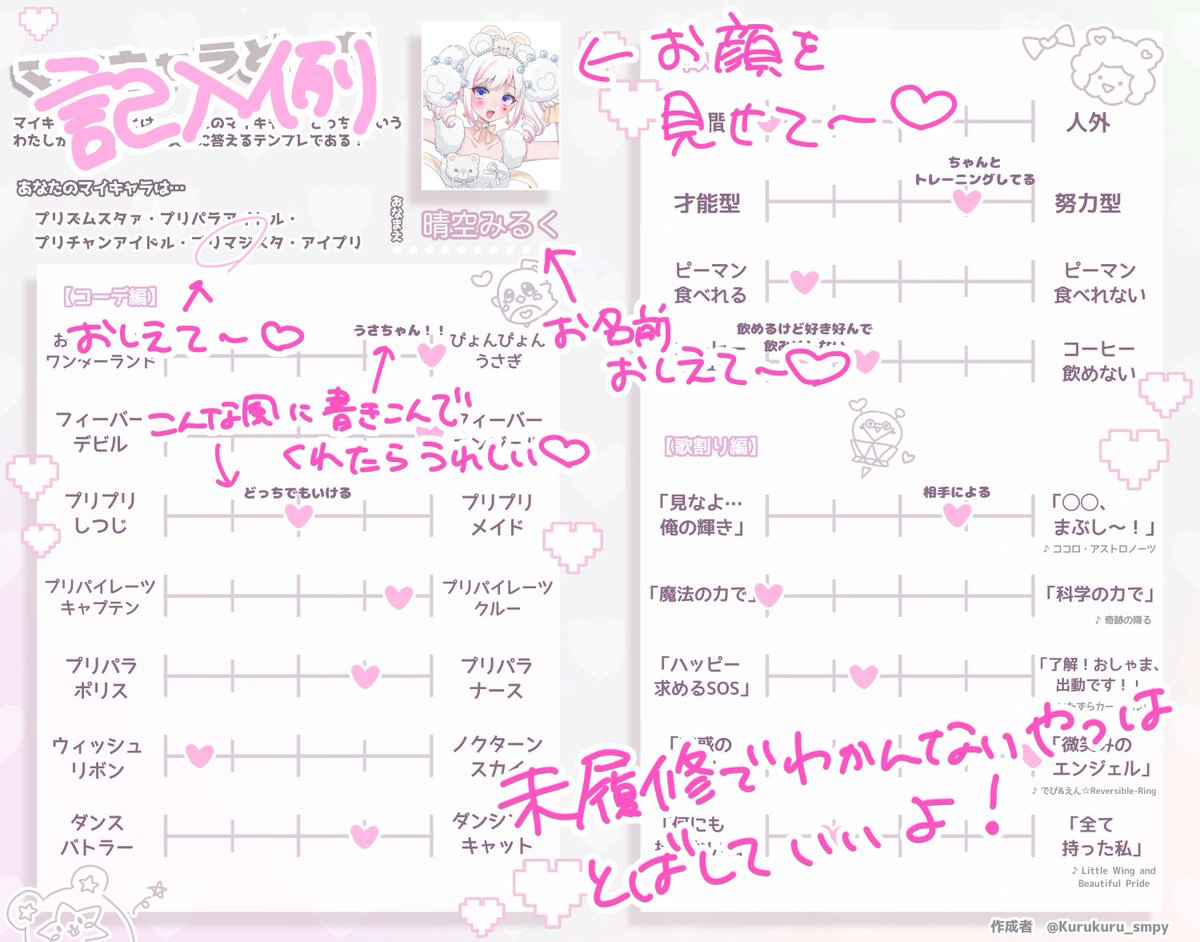 記入例
わたしが
に答えるテンプレである！
あなたのマイキャラは…
プリズムスタァ・プリパラアイドル・
プリチャンアイドル・プリマジスタ・アイプリ
おしえて〜♡
おなまえ
晴空みるく
お名前
おしえて〜♡
← お顔を
見せて〜♡
【コーデ編】
ワンダーランド
うさちゃん！！
ぴょんぴょん
うさぎ
こんな風に書きこんで
くれたらうれしい♡
フィーバー
デビル
フィーバー
どっちでもいける
プリプリ
しつじ
プリプリ
メイド
プリパイレーツ
キャプテン
プリパイレーツ
クルー
プリパラ
ポリス
プリパラ
ナース
ウィッシュ
リボン
ノクターン
スカイ
ダンス
バトラー
ダンシング
キャット
間
人外
ちゃんと
トレーニングしてる
才能型
努力型
ピーマン
食べれる
ピーマン
食べれない
飲めるけど好き好んで
コーヒー
飲めない
【歌割り編】
相手による
「見なよ…
俺の輝き」
「〇〇、
まぶし〜！」
♪ ココロ・アストロノーツ
「魔法の力で」
「科学の力で」
♪ 奇跡の降る
「ハッピー
求めるSOS」
「了解！おしゃま、
出動です！」
「微笑みの
エンジェル」
♪ でび&えん☆Reversible-Ring
「何にも
「全て
持った私」
♪ Little Wing and
Beautiful Pride
未履修でわかんてないやつは
とばしていいよ！
作成者 @Kurukuru_smpy